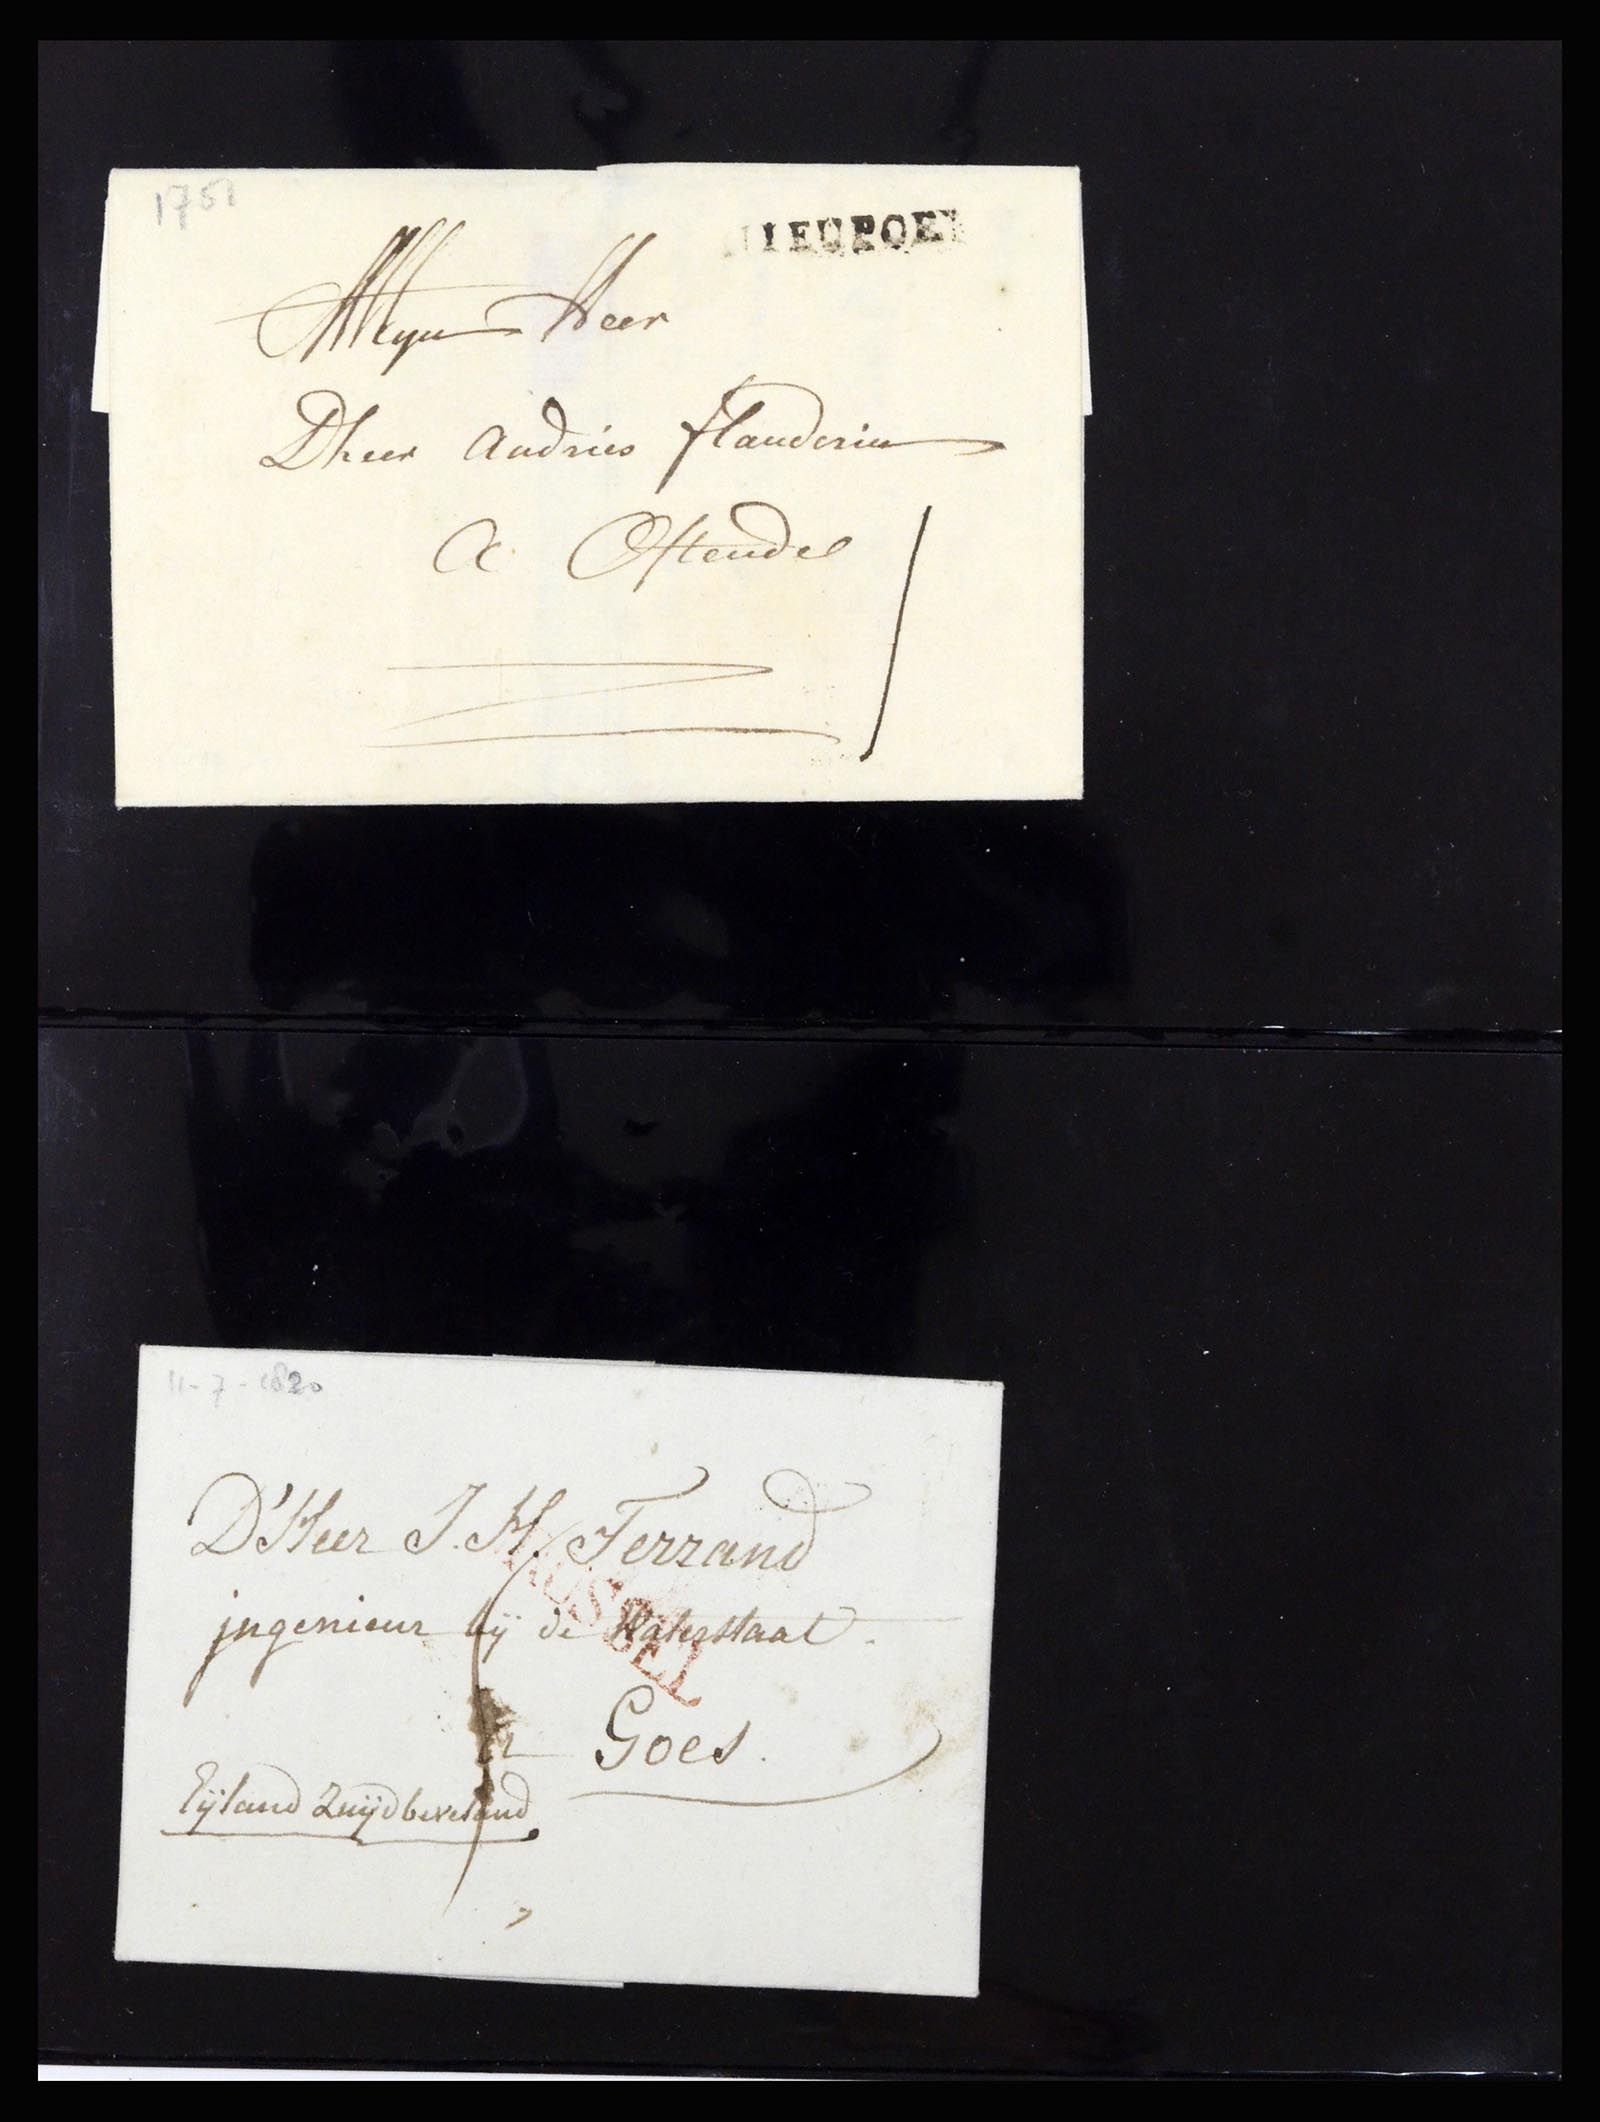 1751
NIEUPORT
Myn Heer
Dheer Andries flanderin
A Ostende
11-7-1820
D'Heer J. H. Ferrand
jngenieur bÿ de Waterstaat.
Goes.
Eÿland Zuÿdbeveland